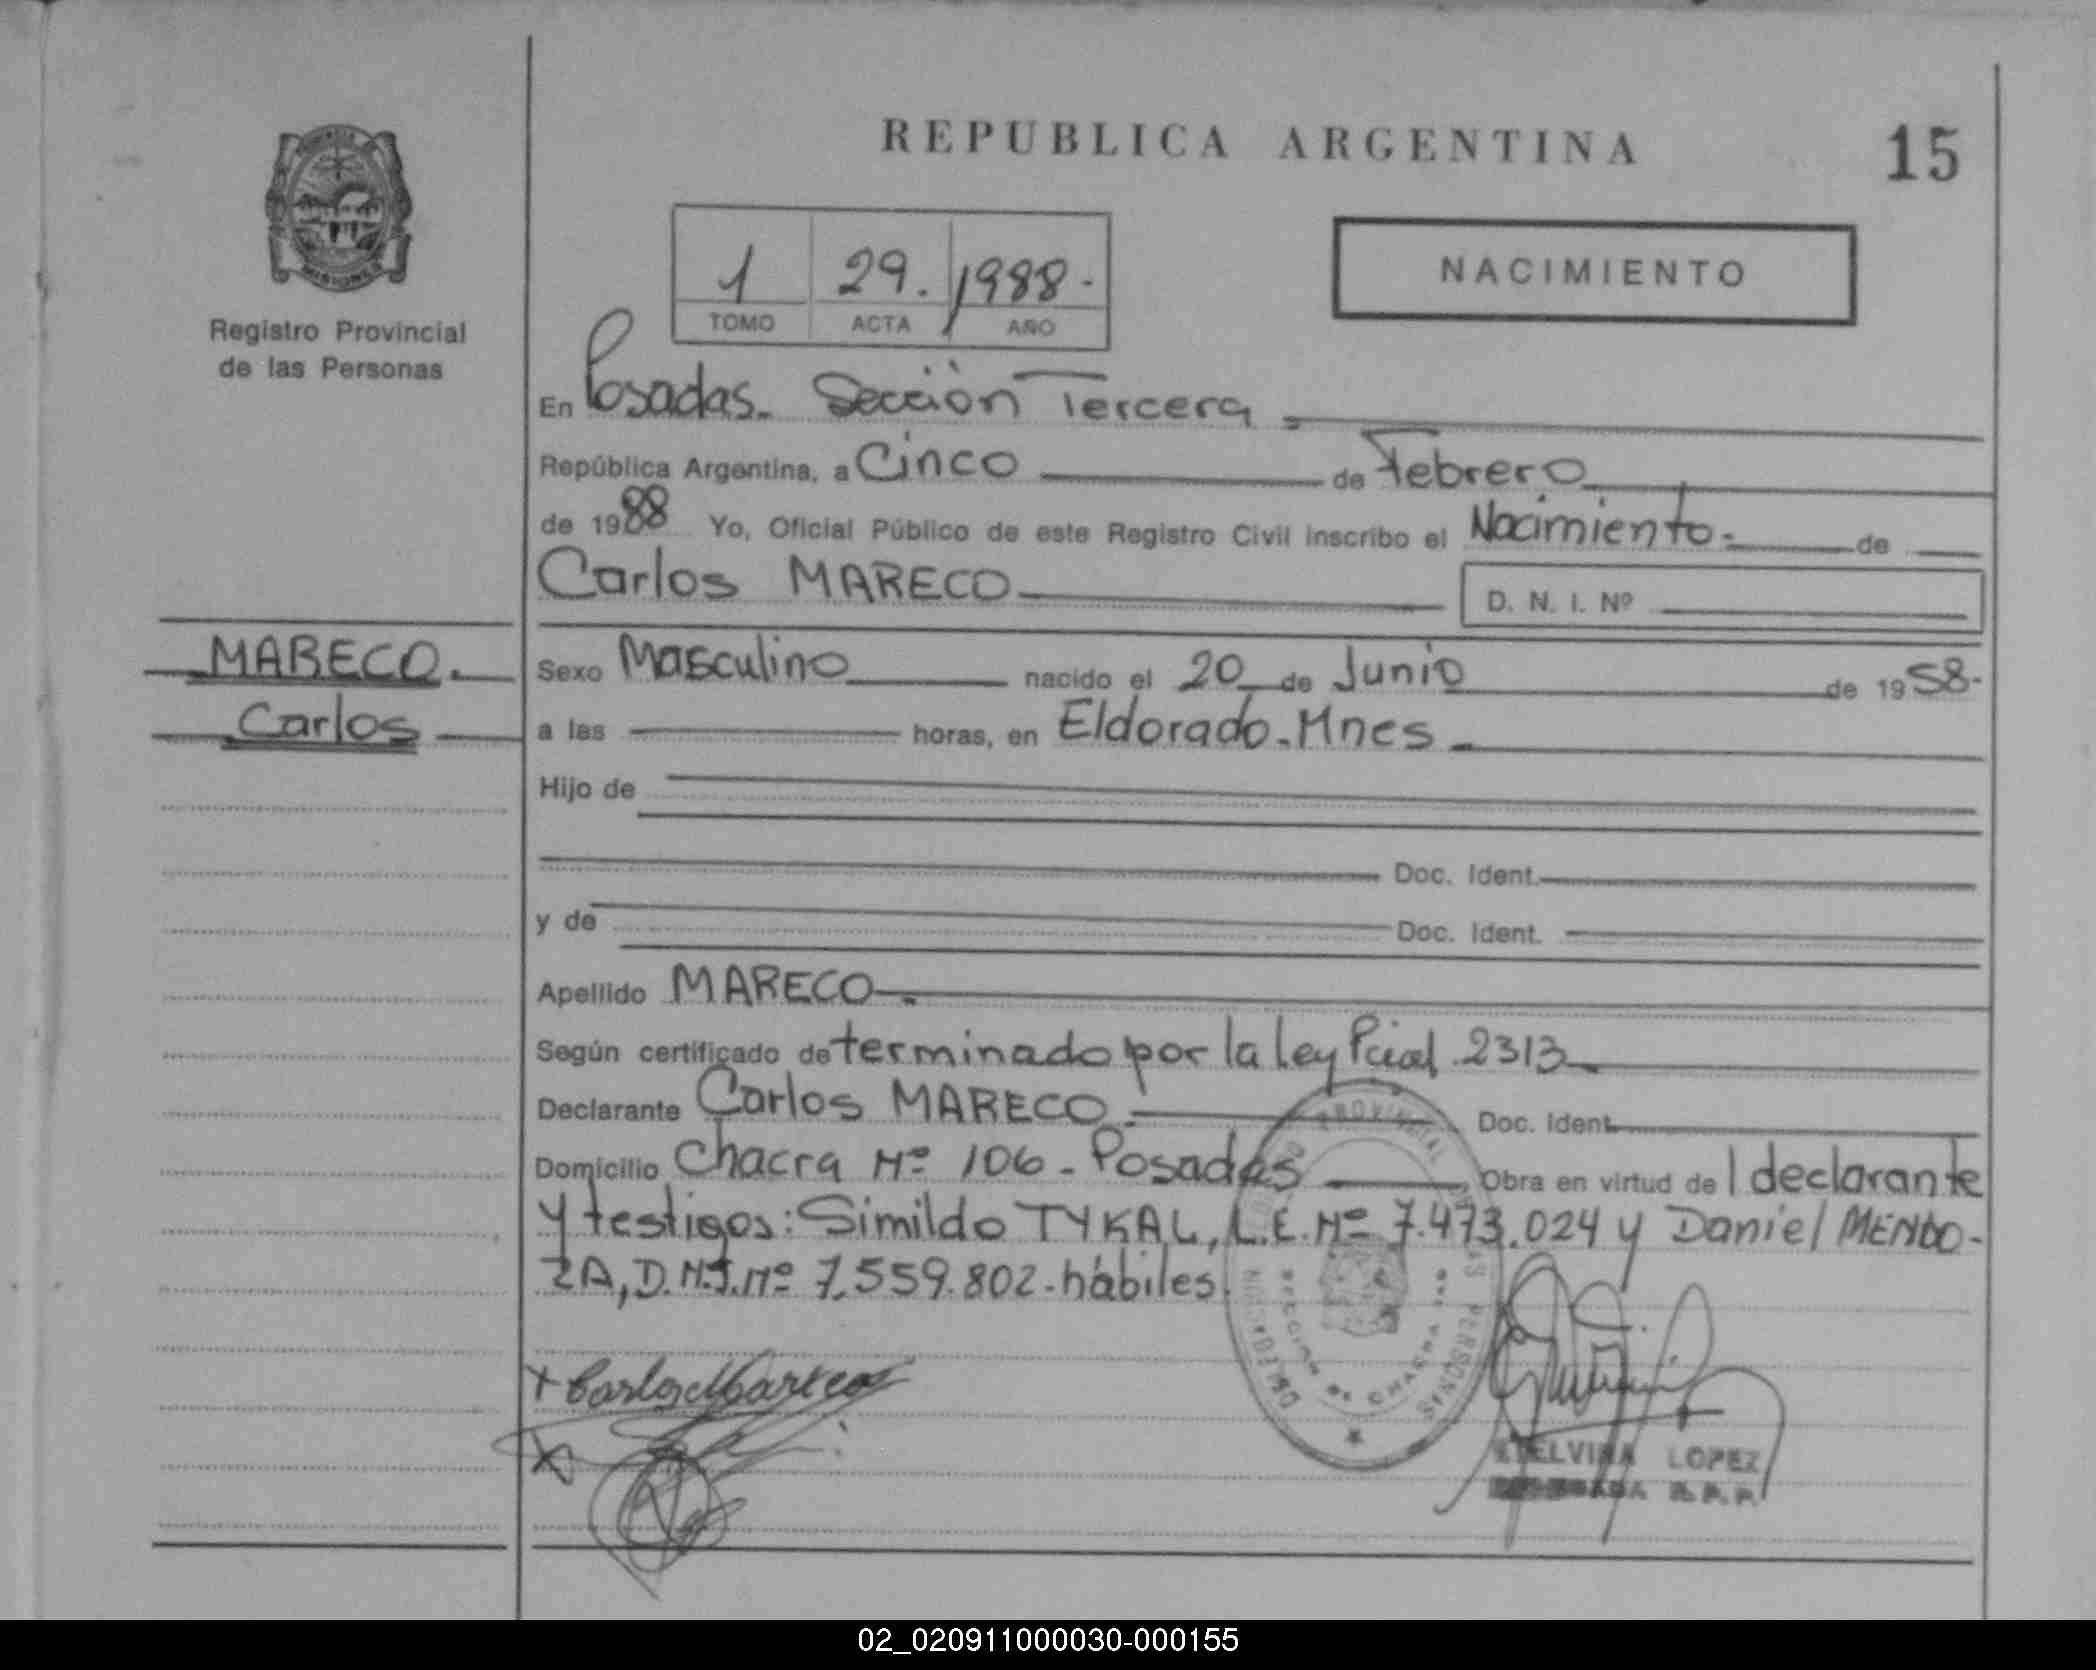 REPUBLICA ARGENTINA
15
PROVINCIA
MISIONES
Registro Provincial
de las Personas
1 29. 1988.
TOMO ACTA AÑO
NACIMIENTO
En Posadas. Sección Tercera
República Argentina, a Cinco de Febrero
de 1988 Yo, Oficial Público de este Registro Civil inscribo el Nacimiento. de
Carlos MARECO D. N. I. Nº
MARECO.
Carlos
Sexo Masculino nacido el 20 de Junio de 1958.
a las horas, en Eldorado. Mnes
Hijo de
Doc. Ident.
y de Doc. Ident.
Apellido MARECO
Según certificado determinado por la Ley Pcial 2313
Declarante Carlos MARECO. Doc. Ident.
Domicilio Chacra Nº 106 - Posadas Obra en virtud del declarante
y testigos: Simildo TYKAL, L.E. Nº 7.473.024 y Daniel MENDO-
ZA, D.N.I. Nº 7.559.802. hábiles
PROVINCIAL DE LAS PERSONAS
x Carlos Mareco
x
LOPEZ
02_020911000030-000155